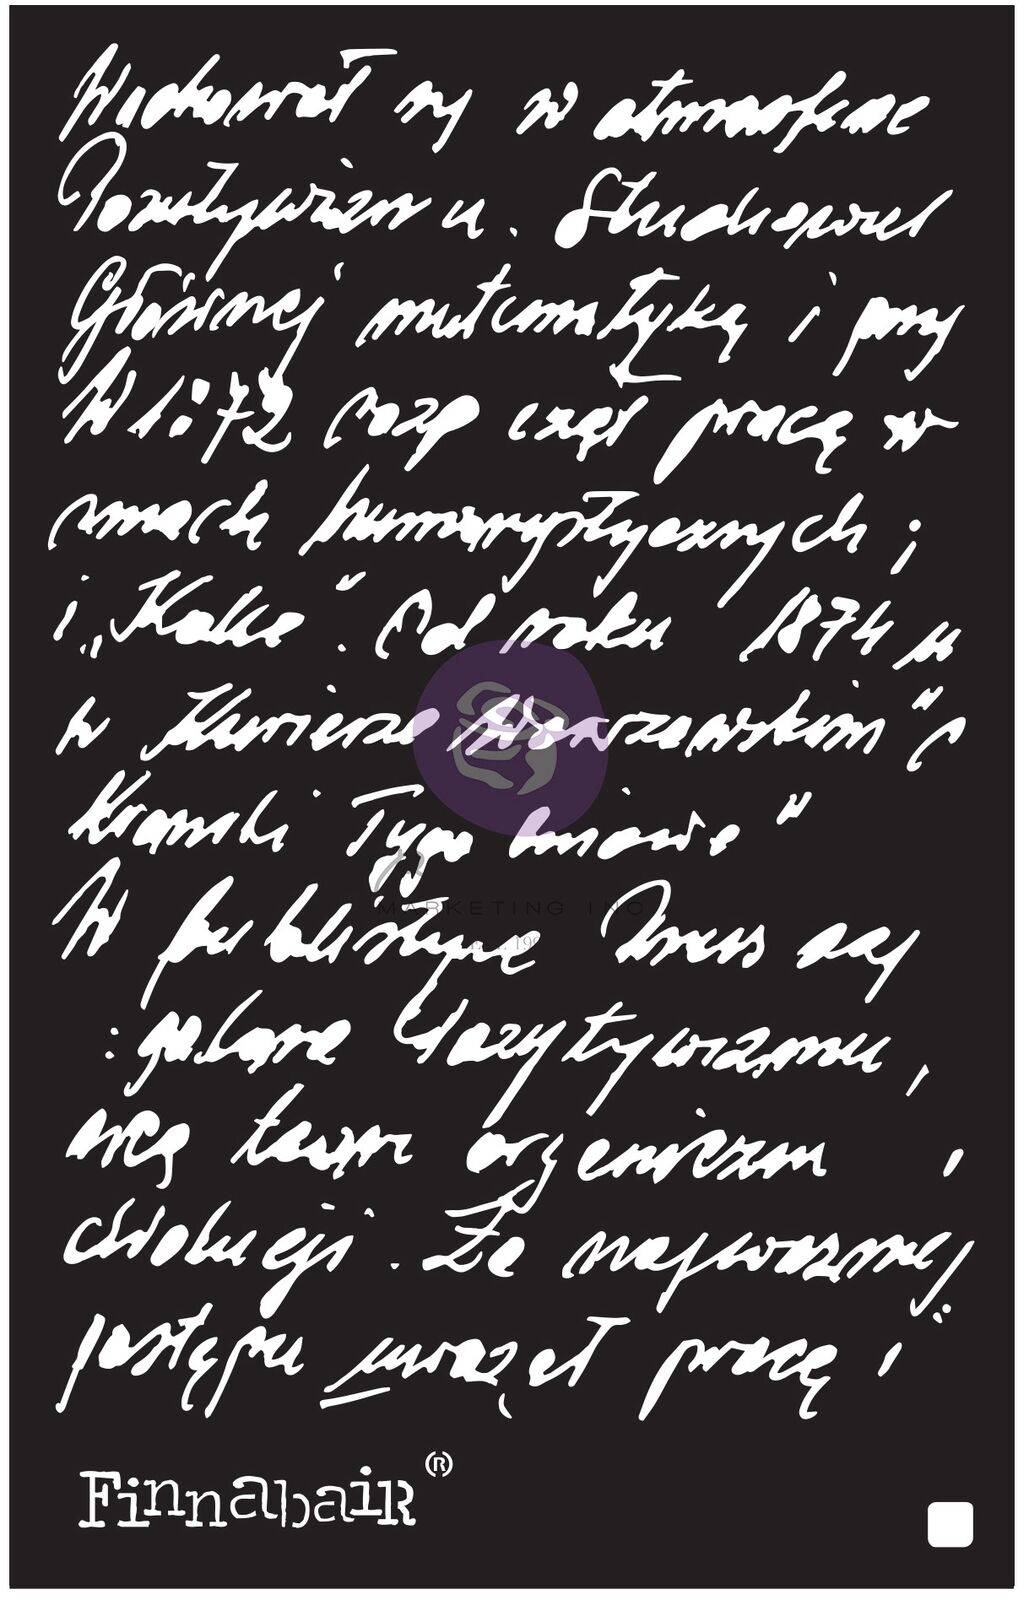 Wychował się w atmosferze
Pozytywizmu. Studiował
Głównej matematykę i przy
W 1872 rozp czął pracę w
smach humorystycznych i
i „Kolce". Od roku 1874 u
w Kurierze Warszawskim" i
Kroniki Tygo dniowe"
W publistyce Prus
: gatarz Pozytywizmu,
organizm i
ewolucji. Za najważniej
postępu uważał pracę i
MARKETING INC
Finnabair (R)